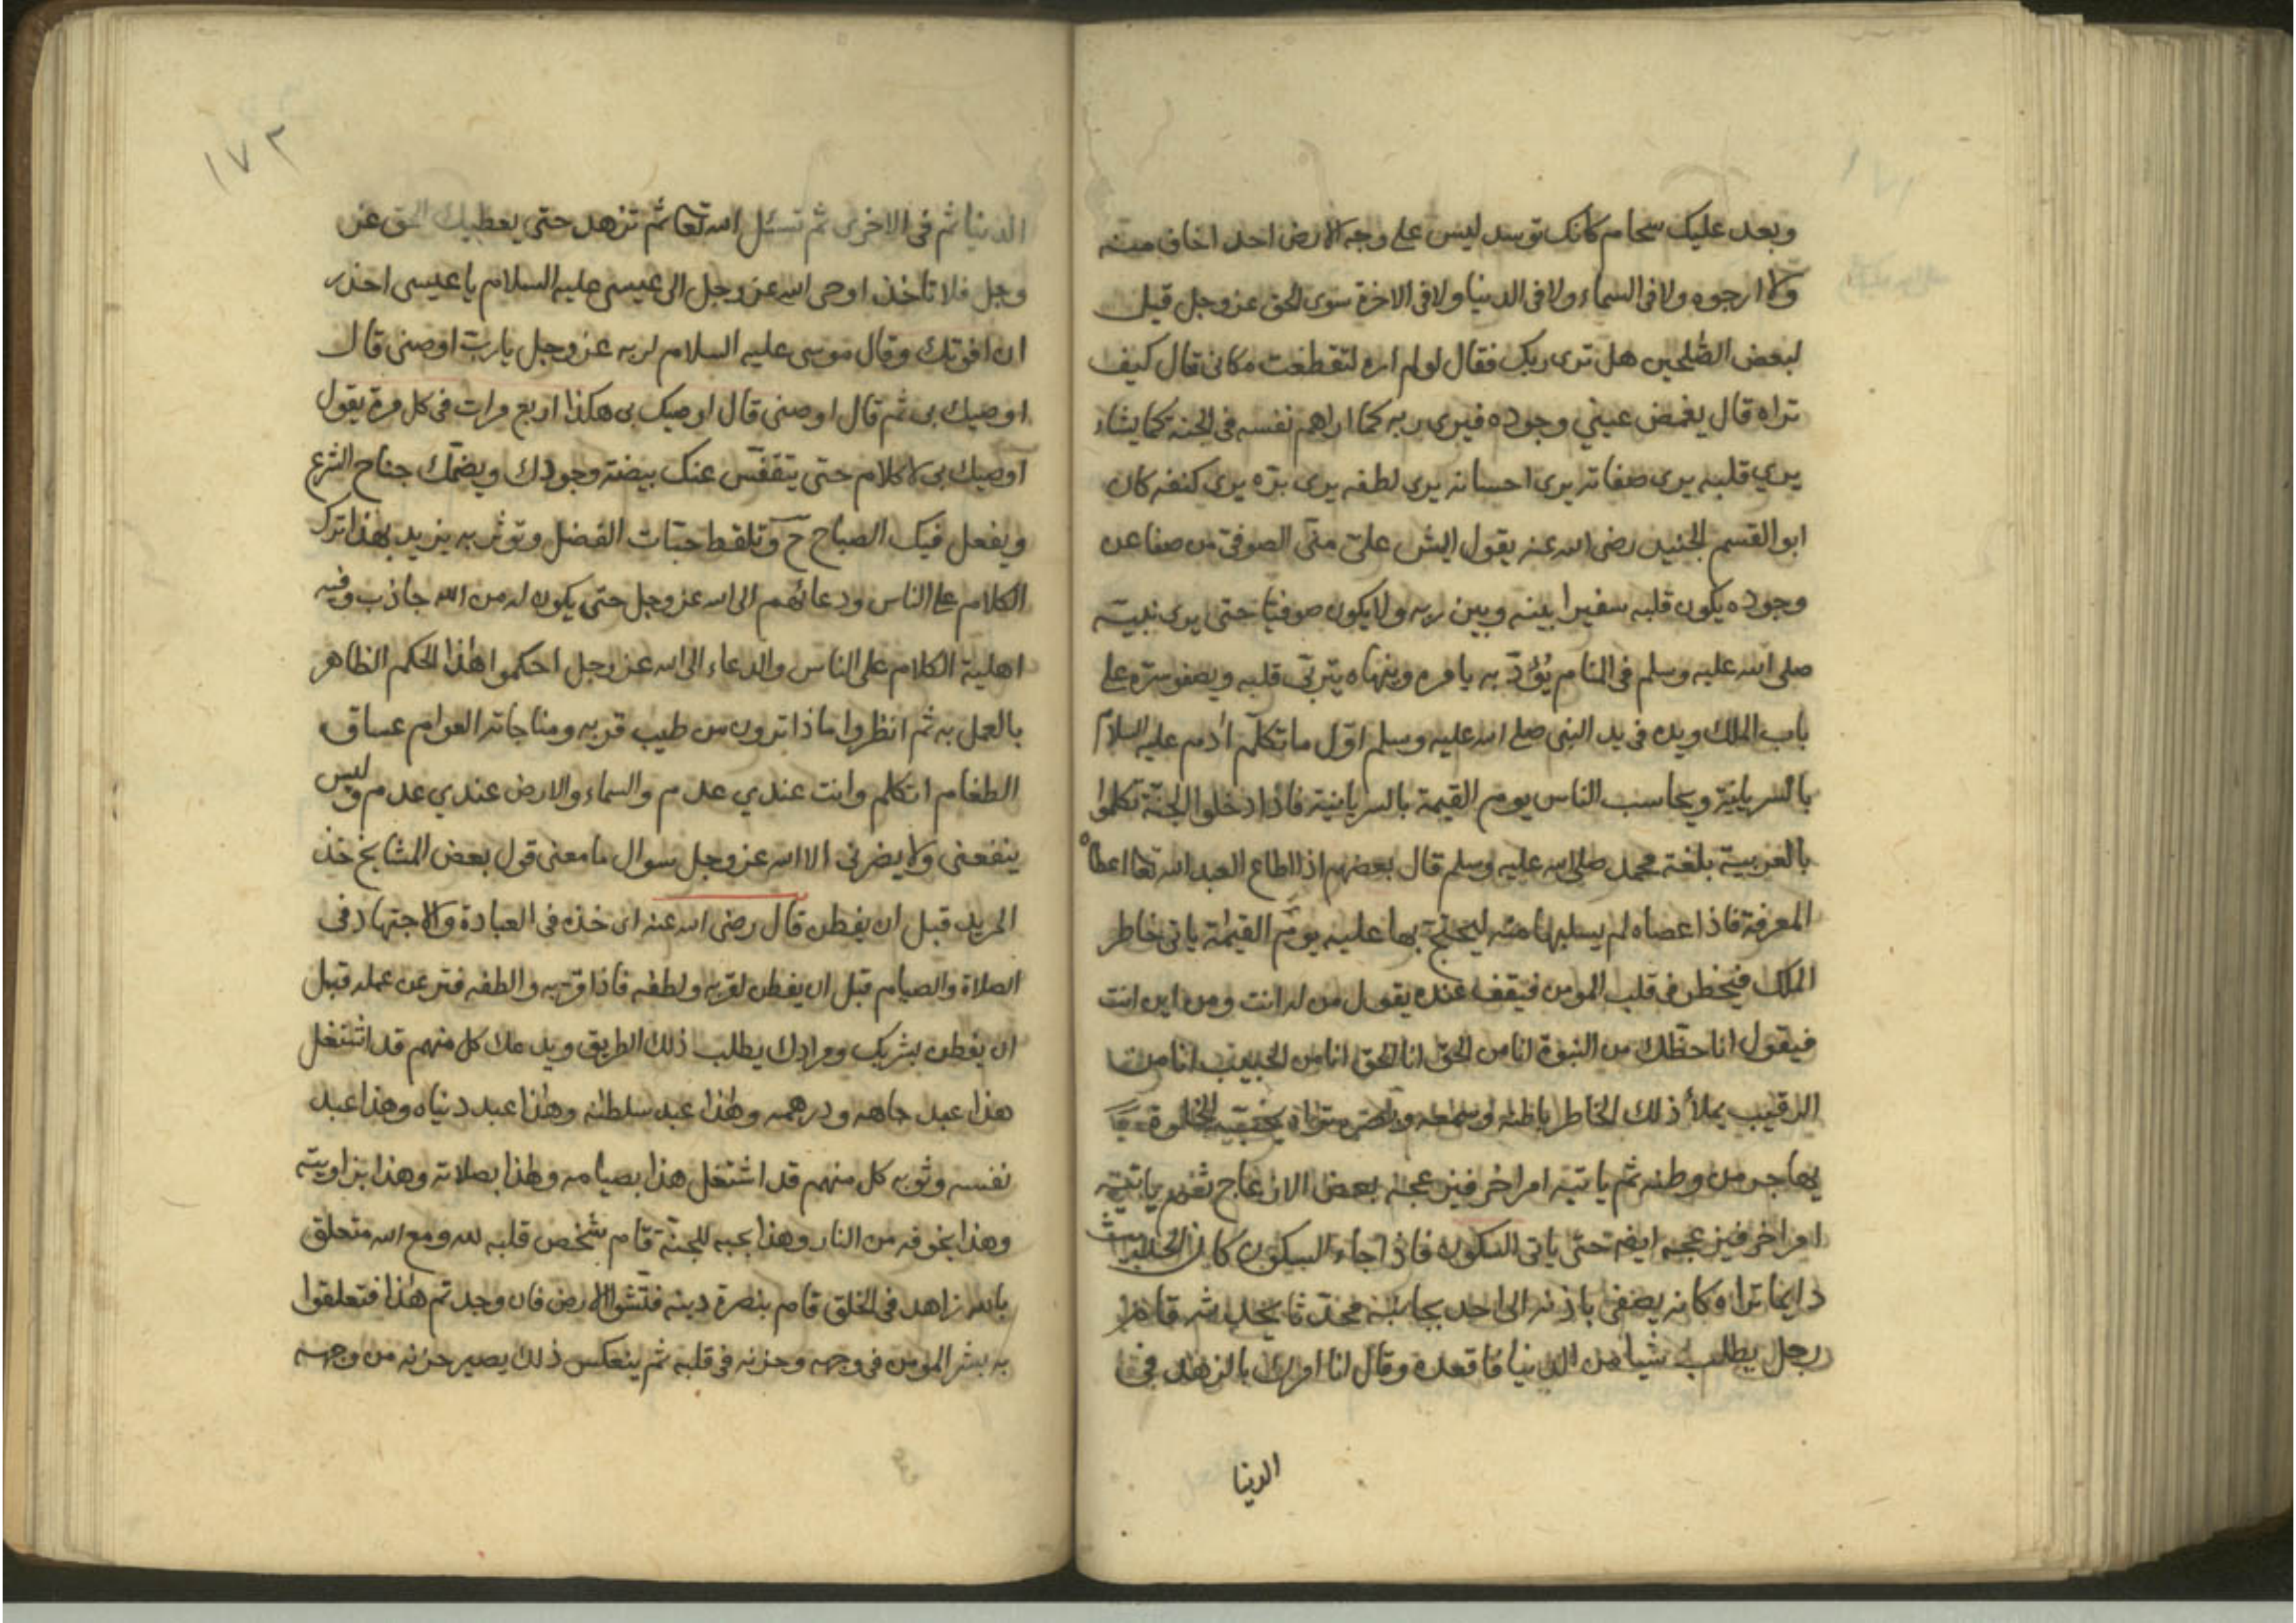 وبعد عليك سخام كانك توسد ليس على وجه الارض احد اخاف منه
ولا ارجوه ولا فى السماء ولا فى الدنيا ولا فى الاخرة سوى الحق عز وجل قيل
لبعض الصلحين هل ترى ربك فقال لو لم اره لتقطعت مكانى قال كيف
تراه قال يغمض عيني وجوده فيرى ربه كما اراهم نفسه فى الجنة كما يشاء
يري قلبه يرى صفاته يرى احسانه يرى لطفه يرى بره يرى كنفه كان
ابو القسم الجنيد رضى الله عنه يقول ايش على منى الصوفى من صفا عن
وجوده يكون قلبه سفيرا بينه وبين ربه ولا يكون صوفيا حتى يرى نبيه
صلى الله عليه وسلم فى المنام يؤدبه يامره وينهاه يتربى قلبه ويصفو سره على
باب الملك ويده فى يد النبى صلى الله عليه وسلم اول ما تكلم ادم عليه السلام
بالسريانية ويحاسب الناس يوم القيمة بالسريانية فاذا دخلوا الجنة تكلموا
بالعربية بلغة محمد صلى الله عليه وسلم قال بعضهم اذا اطاع العبد الله تعا اعطاه
المعرفة فاذا عصاه لم يسلبها منه ليحتج بها عليه يوم القيمة ياتى خاطر
الملك فيخطر فى قلب المومن فيقف عنده يقول من له انت ومن اين انت
فيقول انا حظك من النبوة انا من الحق انا الحق انا من الحبيب انا من
الرقيب يملأ ذلك الخاطر باطنه وسمعه
يهاجر من وطنه ثم ياتيه امر اخر فيزعجه بعض الازعاج ثم ياتيه
امر اخر فيزعجه ايضه حتى ياتى السكون فاذا جاء السكون كان
دايما تراه كانه يصغى باذنه الى احد بجانبه محدثا يحدثه قام
رجل يطلب شيا من الدنيا فاقعده وقال انا امرك بالزهد فى
الدنيا
١٧٢
الدنيا ثم فى الاخرى ثم تسئل الله تعا ثم تزهد حتى يعطيك الحق عز
وجل فلا تاخذ اوحى الله عز وجل الى عيسى عليه السلام يا عيسى احذر
ان افوتك وقال موسى عليه السلام لربه عز وجل يا رب اوصنى قال
اوصيك بى ثم قال اوصنى قال اوصيك بى هكذا اربع مرات فى كل مرة يقول
اوصيك بى لا كلام حتى يتفقس عنك بيضة وجودك ويضمك جناح الشرع
ويفعل فيك الصباح ح وتلقط حبات الفضل وتوثر به يزيد بهذا ترك
الكلام على الناس ودعائهم الى الله عز وجل حتى يكون له من الله جاذب وفيه
اهلية الكلام على الناس والدعاء الى الله عز وجل احكموا هذا الحكم الظاهر
بالعمل به ثم انظروا ماذا ترون من طيب قربه ومناجاته العوام عساق
الطغام اتكلم وانت عندي عدم والسماء والارض عندي عدم وليس
ينفعنى ولا يضرنى الا الله عز وجل سوال ما معنى قول بعض المشايخ خذ
المريد قبل ان يفطن قال رضى الله عنه اى خذه فى العبادة والاجتهاد فى
الصلاة والصيام قبل ان يفطن لقربه ولطفه فاذا قربه والطفه فتر عن عمله قبل
ان يفطن بشربك ومرادك يطلب ذلك الطريق ويدعك كل منهم قد اشتغل
هذا عبد جاهه ودرهمه وهذا عبد سلطنه وهذا عبد دنياه وهذا عبد
نفسه وثوبه كل منهم قد اشتغل هذا بصيامه وهذا بصلاته وهذا بزاويته
وهذا بخوفه من النار وهذا بحبه للجنة قام شخص قلبه لله ومع الله متعلق
بالله زاهد فى الخلق قام بنصرة دينه فتشوا الارض فان وجدتم هذا فتعلقوا
به بشر المومن فى وجهه وحزنه فى قلبه ثم ينعكس ذلك يصير حزنه من وجهه